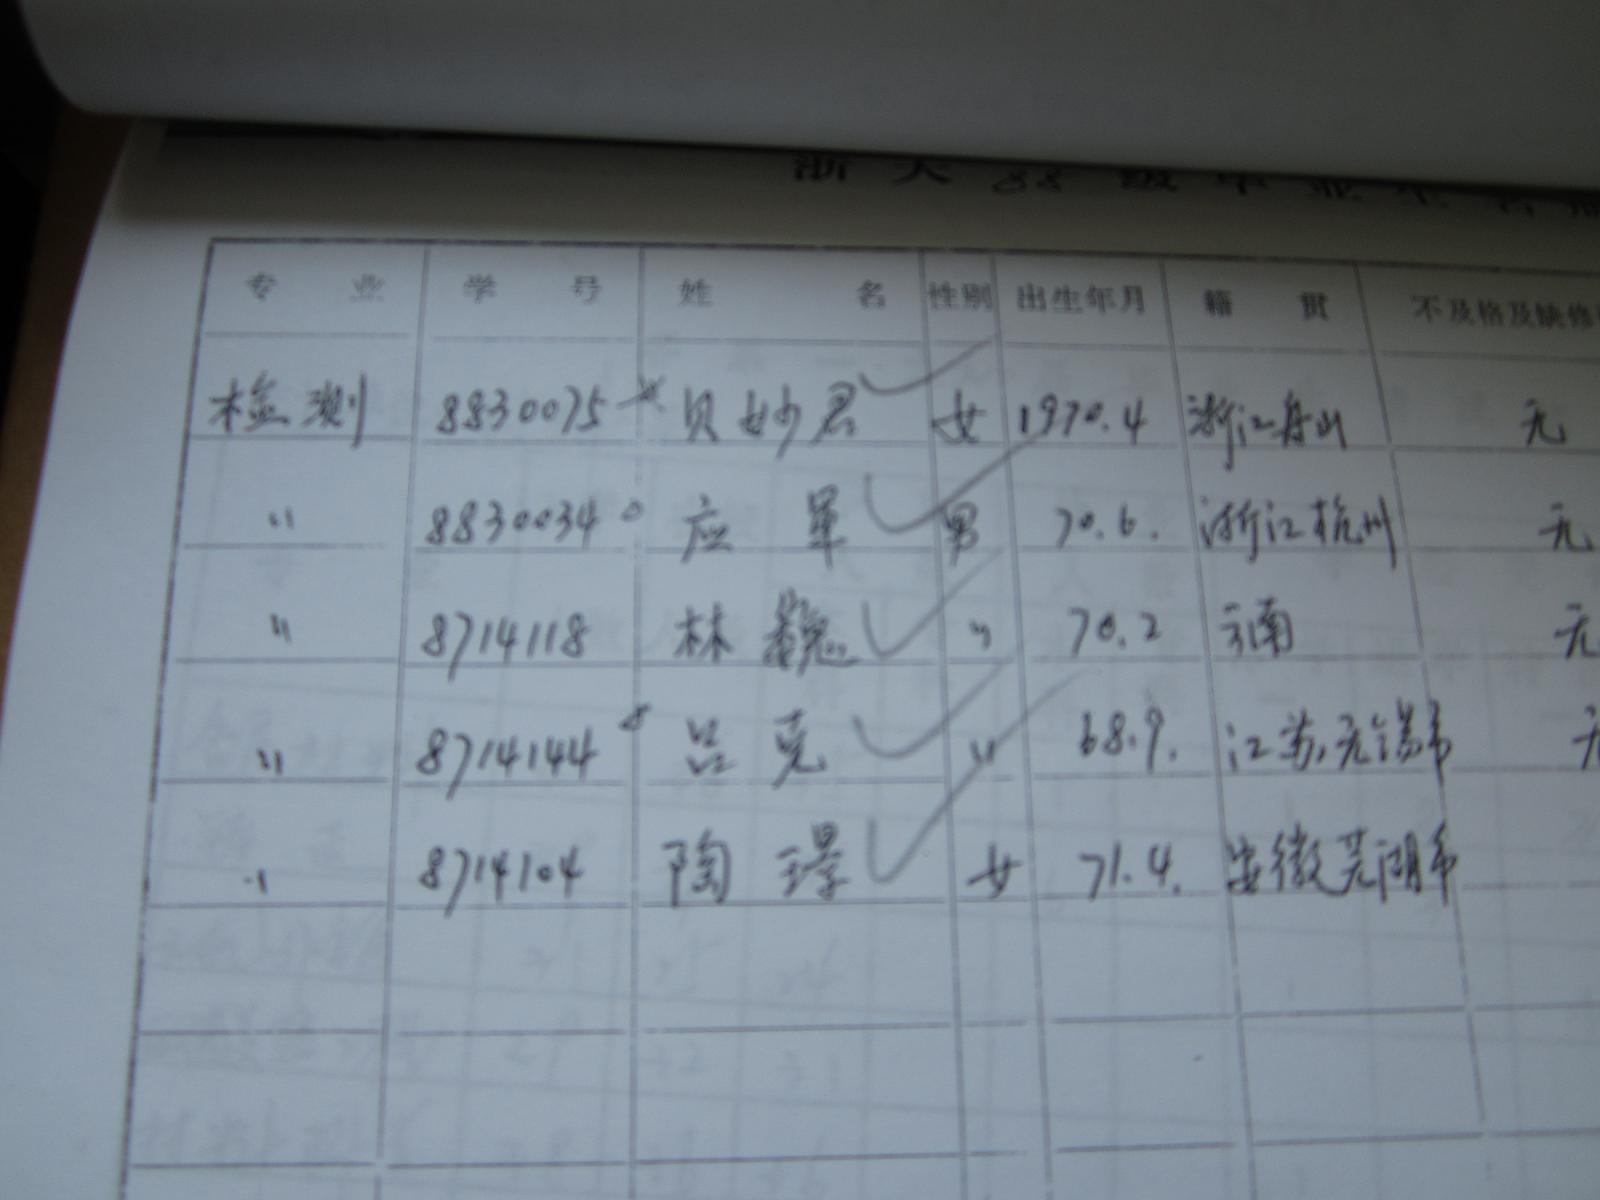 浙大88级毕业生名册
专业 学号 姓名 性别 出生年月 籍贯 不及格及缺修
检测 8830075 贝妙君 女 1970.4 浙江舟山 无
〃 8830034 应军 男 70.6. 浙江杭州 无
〃 8714118 林巍 〃 70.2 云南 无
〃 8714144 吕克 〃 68.9. 江苏无锡市 无
〃 8714104 陶璟 女 71.4. 安徽芜湖市